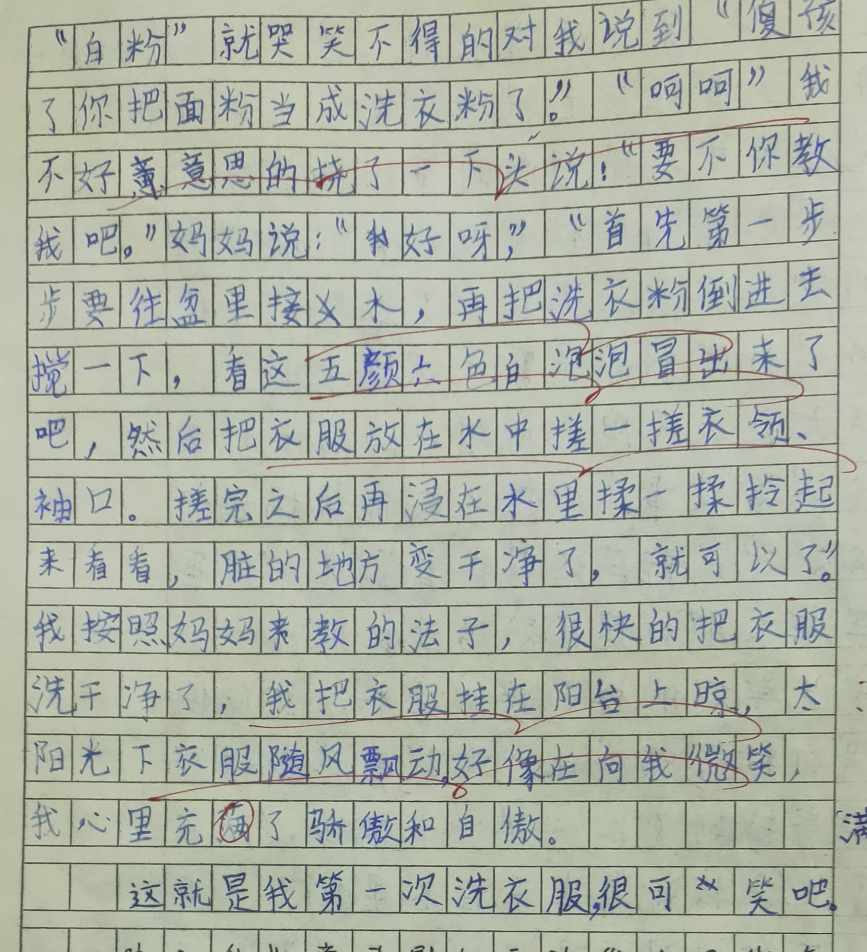 “白粉”就哭笑不得的对我说到“傻孩
了你把面粉当成洗衣粉了。”“呵呵”我
不好意思的挠了一下头说：“要不你教
我吧。”妈妈说：“好呀，”“首先第一步
步要往盆里接水，再把洗衣粉倒进去
搅一下，看这五颜六色白泡泡冒出来了
吧，然后把衣服放在水中搓一搓衣领、
袖口。搓完之后再浸在水里揉一揉拎起
来看看，脏的地方变干净了，就可以了。”
我按照妈妈教的法子，很快的把衣服
洗干净了，我把衣服挂在阳台上晾，太
阳光下衣服随风飘动，好像在向我微笑，
我心里充满了骄傲和自傲。
满
这就是我第一次洗衣服，很可笑吧。